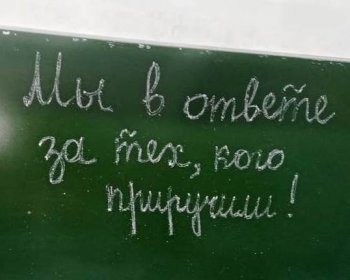 Мы в ответе
за тех, кого
приручили!